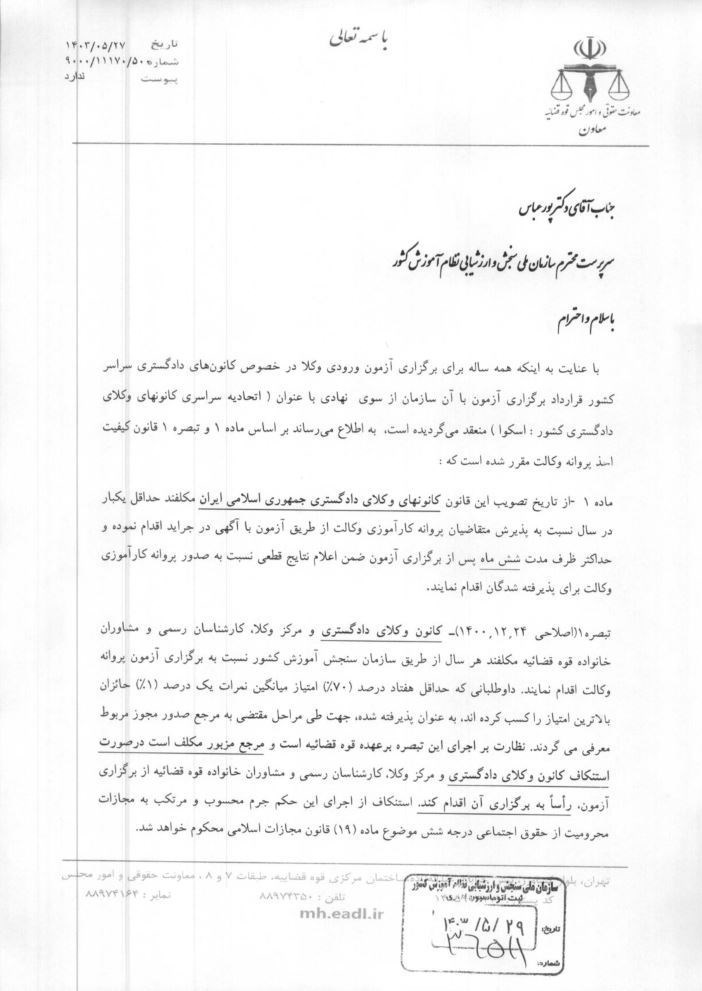 باسمه تعالی
تاریخ ۱۴۰۳/۰۵/۲۷
شماره ۹۰۰۰/۱۱۱۷۰/۵۰۰
پیوست ندارد
معاونت حقوقی و امور مجلس قوه قضائیه
معاون
جناب آقای دکتر پورعباس
سرپرست محترم سازمان ملی سنجش و ارزشیابی نظام آموزش کشور
باسلام و احترام
با عنایت به اینکه همه ساله برای برگزاری آزمون ورودی وکلا در خصوص کانون‌های دادگستری سراسر
کشور قرارداد برگزاری آزمون با آن سازمان از سوی نهادی با عنوان ( اتحادیه سراسری کانونهای وکلای
دادگستری کشور : اسکوا ) منعقد می‌گردیده است، به اطلاع می‌رساند بر اساس ماده ۱ و تبصره ۱ قانون کیفیت
اخذ پروانه وکالت مقرر شده است که :
ماده ۱ -از تاریخ تصویب این قانون کانونهای وکلای دادگستری جمهوری اسلامی ایران مکلفند حداقل یکبار
در سال نسبت به پذیرش متقاضیان پروانه کارآموزی وکالت از طریق آزمون با آگهی در جراید اقدام نموده و
حداکثر ظرف مدت شش ماه پس از برگزاری آزمون ضمن اعلام نتایج قطعی نسبت به صدور پروانه کارآموزی
وکالت برای پذیرفته شدگان اقدام نمایند.
تبصره۱(اصلاحی ۱۴۰۰,۱۲,۲۴)ـ کانون وکلای دادگستری و مرکز وکلا، کارشناسان رسمی و مشاوران
خانواده قوه قضائیه مکلفند هر سال از طریق سازمان سنجش آموزش کشور نسبت به برگزاری آزمون پروانه
وکالت اقدام نمایند. داوطلبانی که حداقل هفتاد درصد (۷۰٪) امتیاز میانگین نمرات یک درصد (۱٪) حائزان
بالاترین امتیاز را کسب کرده اند، به عنوان پذیرفته شده، جهت طی مراحل مقتضی به مرجع صدور مجوز مربوط
معرفی می گردند. نظارت بر اجرای این تبصره برعهده قوه قضائیه است و مرجع مزبور مکلف است درصورت
استنکاف کانون وکلای دادگستری و مرکز وکلا، کارشناسان رسمی و مشاوران خانواده قوه قضائیه از برگزاری
آزمون، رأساً به برگزاری آن اقدام کند. استنکاف از اجرای این حکم جرم محسوب و مرتکب به مجازات
محرومیت از حقوق اجتماعی درجه شش موضوع ماده (۱۹) قانون مجازات اسلامی محکوم خواهد شد.
تهران، ساختمان مرکزی قوه قضاییه، طبقات ۷ و ۸ ، معاونت حقوقی و امور مجلس
تلفن : ۸۸۹۷۴۳۵۰ نمابر : ۸۸۹۷۴۱۶۴
mh.eadl.ir
سازمان ملی سنجش و ارزشیابی نظام آموزش کشور
ثبت اتوماسیون اداری
تاریخ: ۱۴۰۳/۵/۲۹
شماره: